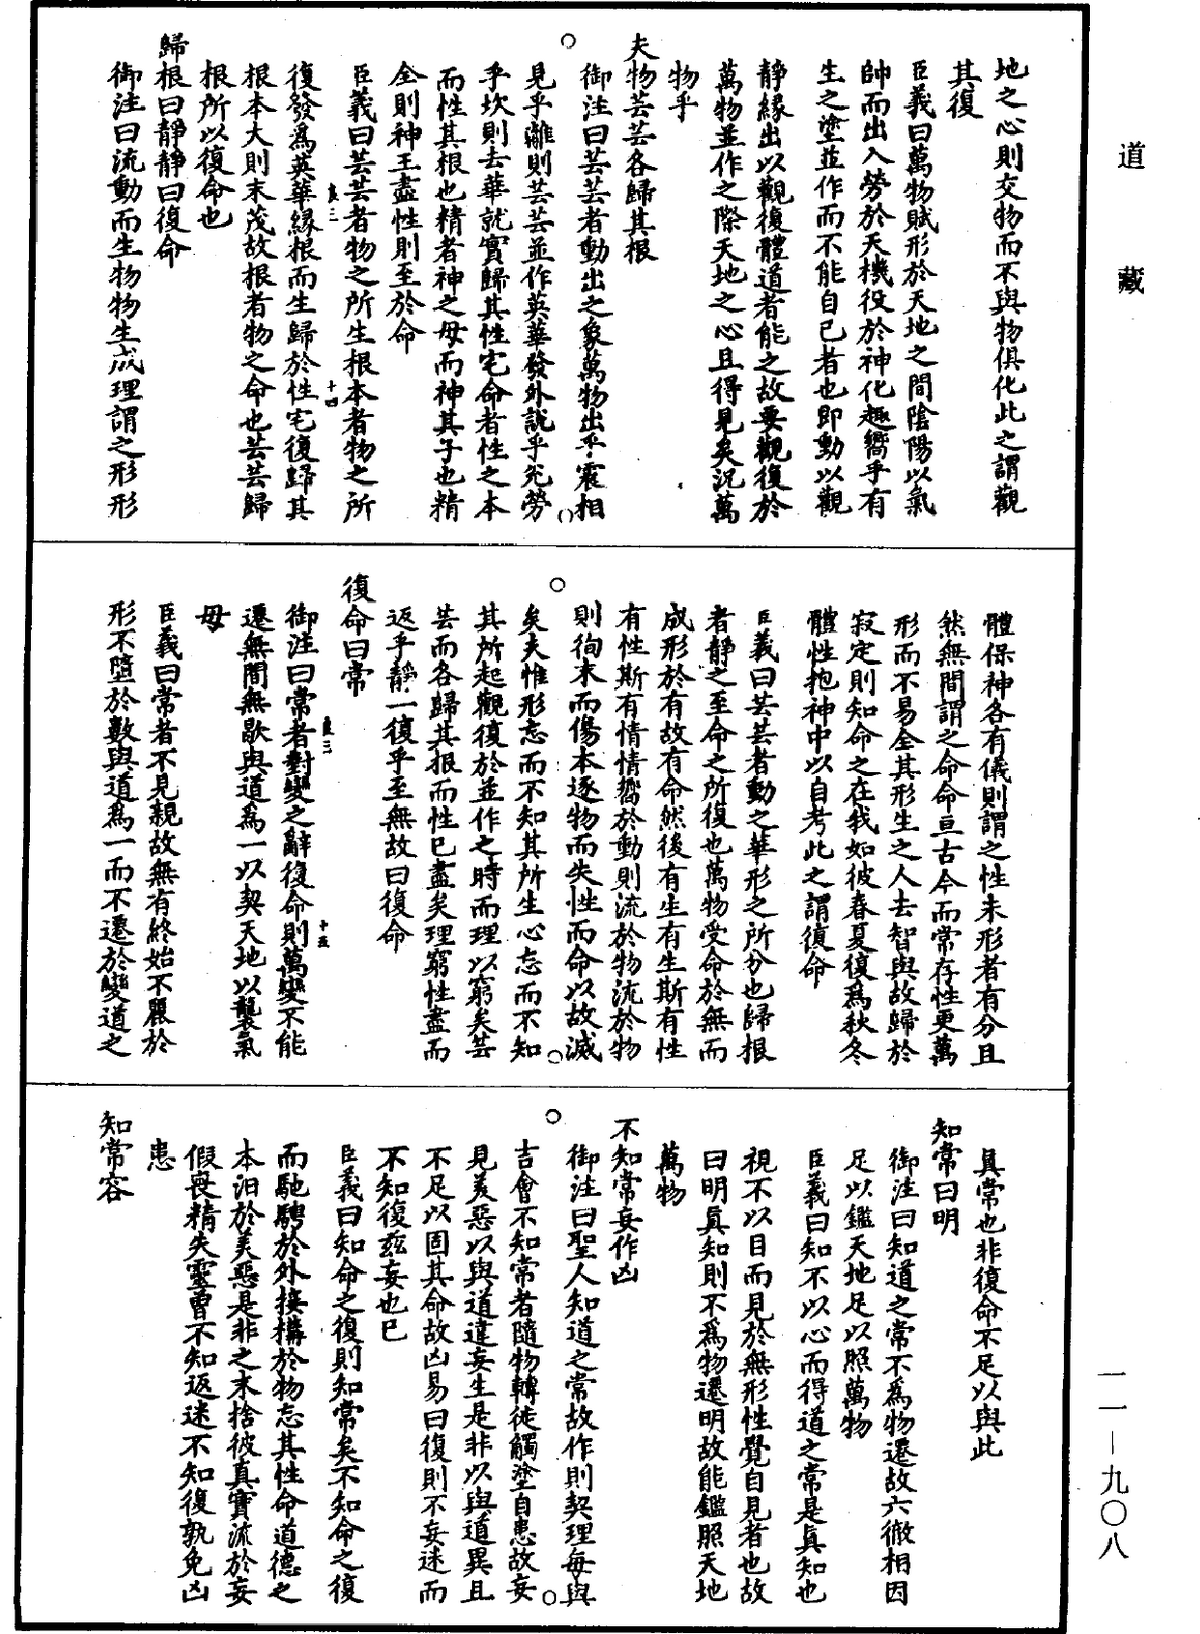 道藏
地之心則交物而不與物俱化此之謂觀
其復
臣義曰萬物賦形於天地之間陰陽以氣
帥而出入勞於天機役於神化趣嚮乎有
生之塗並作而不能自已者也即動以觀
靜緣出以觀復體道者能之故要觀復於
萬物並作之際天地之心且得見矣況萬
物乎
夫物芸芸各歸其根
御注曰芸芸者動出之象萬物出乎震相
見乎離則芸芸並作英華發外說乎兌勞
乎坎則去華就實歸其性宅命者性之本
而性其根也精者神之母而神其子也精
全則神王盡性則至於命
臣義曰芸芸者物之所生根本者物之所
復發為英華緣根而生歸於性宅復歸其
根本大則末茂故根者物之命也芸芸歸
根所以復命也
歸根曰靜靜曰復命
御注曰流動而生物物生成理謂之形形
體保神各有儀則謂之性未形者有分且
然無間謂之命命亘古今而常存性更萬
形而不易全其形生之人去智與故歸於
寂定則知命之在我如彼春夏復為秋冬
體性抱神中以自考此之謂復命
臣義曰芸芸者動之華形之所分也歸根
者靜之至命之所復也萬物受命於無而
成形於有故有命然後有生有生斯有性
有性斯有情情嚮於動則流於物流於物
則徇末而傷本逐物而失性而命以故滅
矣夫惟形忘而不知其所生心忘而不知
其所起觀復於並作之時而理以窮矣芸
芸而各歸其根而性已盡矣理窮性盡而
返乎靜一復乎至無故曰復命
復命曰常
御注曰常者對變之辭復命則萬變不能
遷無間無歇與道為一以契天地以襲氣
母
臣義曰常者不見親故無有終始不麗於
形不隨於數與道為一而不遷於變道之
真常也非復命不足以與此
知常曰明
御注曰知道之常不為物遷故六徹相因
足以鑑天地足以照萬物
臣義曰知不以心而得道之常是真知也
視不以目而見於無形性覺自見者也故
曰明真知則不為物遷明故能鑑照天地
萬物
不知常妄作凶
御注曰聖人知道之常故作則契理每與
吉會不知常者隨物轉徙觸塗自患故妄
見美惡以與道違妄生是非以與道異且
不足以固其命故凶易曰復則不妄迷而
不知復茲妄也已
臣義曰知命之復則知常矣不知命之復
而馳騁於外接構於物忘其性命道德之
本汨於美惡是非之末捨彼真實流於妄
假喪精失靈曾不知返迷不知復孰免凶
患
知常容
一一—九〇八